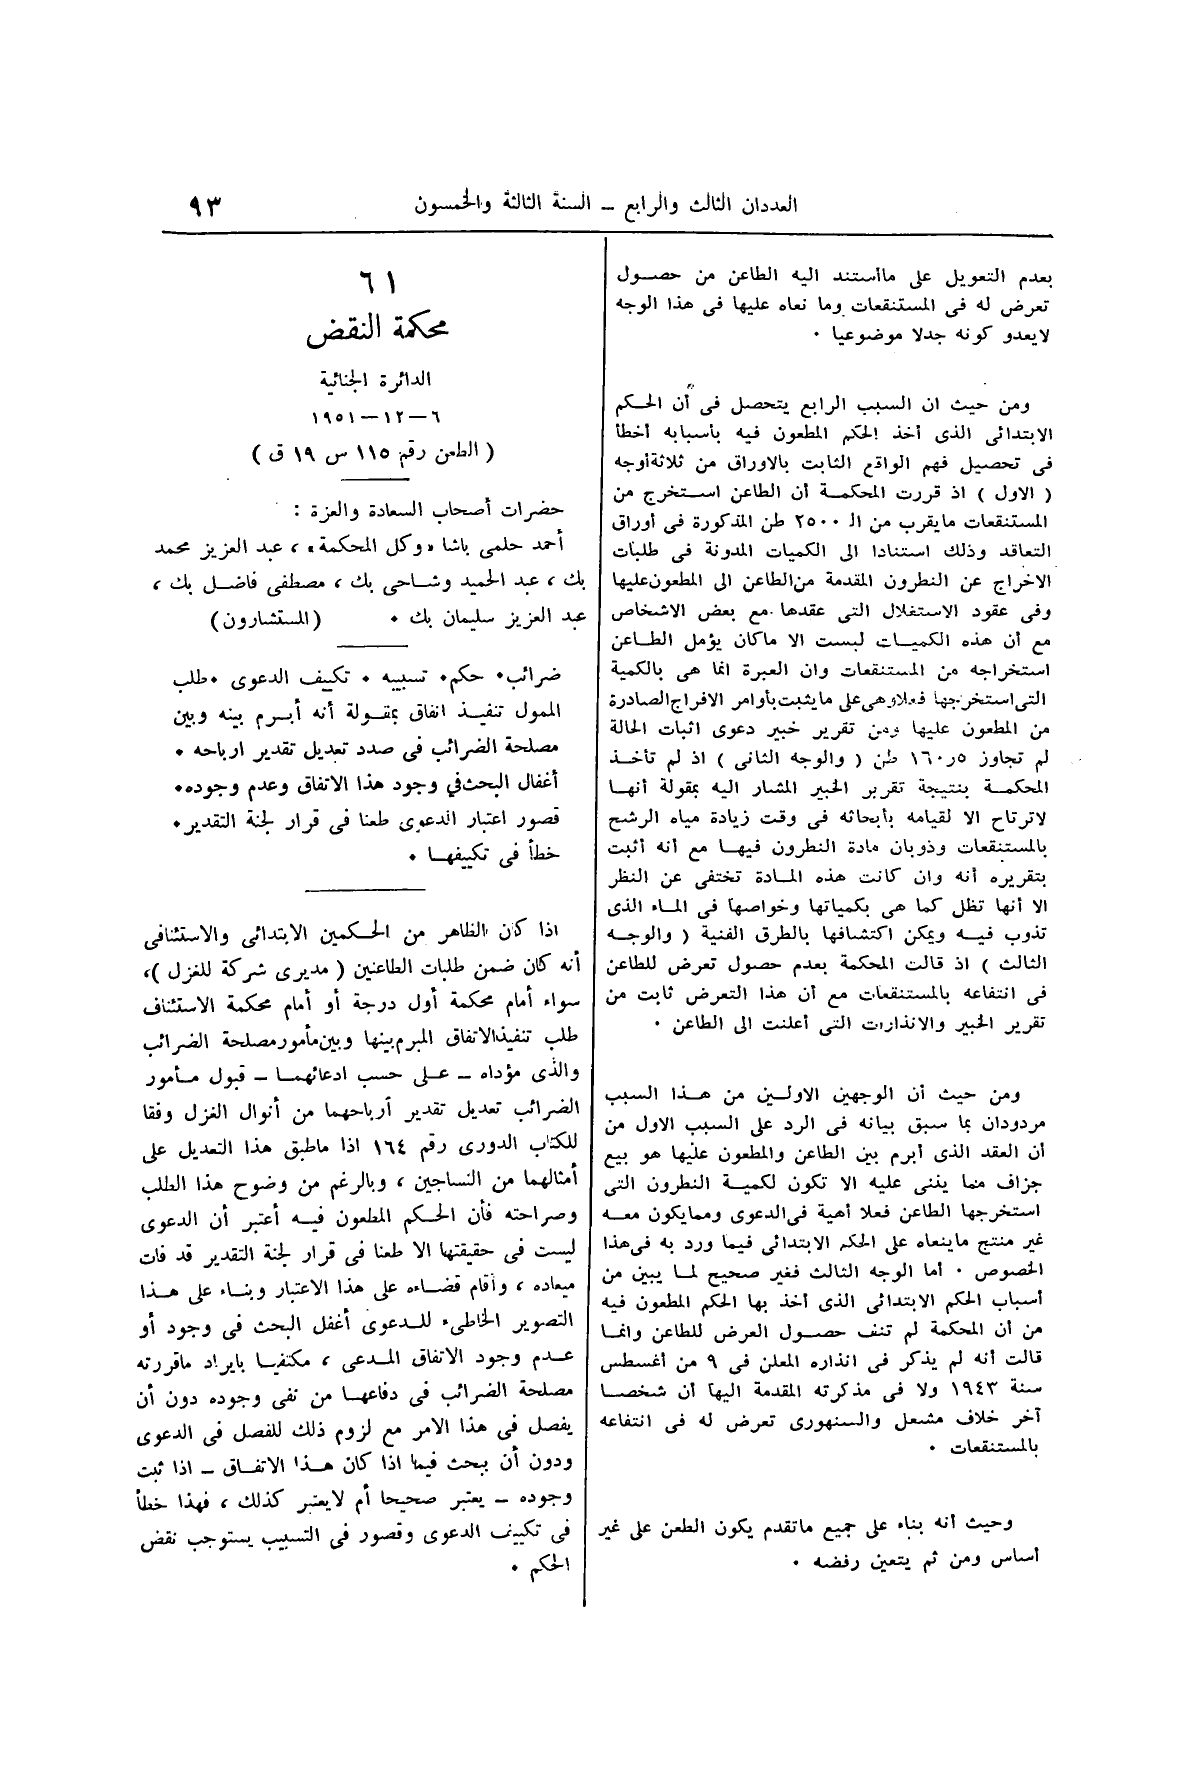 العددان الثالث والرابع – السنة الثالثة والخمسون
٩٣
بعدم التعويل على ماأستند اليه الطاعن من حصول
تعرض له فى المستنقعات وما نعاه عليها فى هذا الوجه
لايعدو كونه جدلا موضوعيا .
ومن حيث ان السبب الرابع يتحصل فى أن الحكم
الابتدائى الذى أخذ الحكم المطعون فيه بأسبابه أخطأ
فى تحصيل فهم الواقع الثابت بالاوراق من ثلاثة أوجه
( الاول ) اذ قررت المحكمة أن الطاعن استخرج من
المستنقعات مايقرب من الـ ٢٥٠٠ طن المذكورة فى أوراق
التعاقد وذلك استنادا الى الكميات المدونة فى طلبات
الاخراج عن النطرون المقدمة من الطاعن الى المطعون عليها
وفى عقود الاستغلال التى عقدها مع بعض الاشخاص
مع أن هذه الكميات ليست الا ماكان يؤمل الطاعن
استخراجه من المستنقعات وان العبرة انما هى بالكمية
التى استخرجها فعلا وهى على مايثبت بأوامر الافراج الصادرة
من المطعون عليها ومن تقرير خبير دعوى اثبات الحالة
لم تجاوز ٥ر١٦٠ طن ( والوجه الثانى ) اذ لم تأخذ
المحكمة بنتيجة تقرير الخبير المشار اليه بمقولة أنها
لاترتاح الا لقيامه بأبحاثه فى وقت زيادة مياه الرشح
بالمستنقعات وذوبان مادة النطرون فيها مع أنه أثبت
بتقريره أنه وان كانت هذه المادة تختفى عن النظر
الا أنها تظل كما هى بكمياتها وخواصها فى الماء الذى
تذوب فيه ويمكن اكتشافها بالطرق الفنية ( والوجه
الثالث ) اذ قالت المحكمة بعدم حصول تعرض للطاعن
فى انتفاعه بالمستنقعات مع أن هذا التعرض ثابت من
تقرير الخبير والانذارات التى أعلنت الى الطاعن .
ومن حيث أن الوجهين الاولين من هذا السبب
مردودان بما سبق بيانه فى الرد على السبب الاول من
أن العقد الذى أبرم بين الطاعن والمطعون عليها هو بيع
جزاف مما ينبنى عليه الا تكون لكمية النطرون التى
استخرجها الطاعن فعلا أهمية فى الدعوى ومما يكون معه
غير منتج ماينعاه على الحكم الابتدائى فيما ورد به فى هذا
الخصوص . أما الوجه الثالث فغير صحيح لما يبين من
أسباب الحكم الابتدائى الذى أخذ بها الحكم المطعون فيه
من أن المحكمة لم تنف حصول العرض للطاعن وانما
قالت أنه لم يذكر فى انذاره المعلن فى ٩ من أغسطس
سنة ١٩٤٣ ولا فى مذكرته المقدمة اليها أن شخصا
آخر خلاف مشعل والسنهورى تعرض له فى انتفاعه
بالمستنقعات .
وحيث أنه بناء على جميع ماتقدم يكون الطعن على غير
أساس ومن ثم يتعين رفضه .
٦١
محكمة النقض
الدائرة الجنائية
٦ – ١٢ – ١٩٥١
( الطعن رقم ١١٥ س ١٩ ق )
حضرات أصحاب السعادة والعزة :
أحمد حلمى باشا «وكل المحكمة» ، عبد العزيز محمد
بك ، عبد الحميد وشاحى بك ، مصطفى فاضل بك ،
عبد العزيز سليمان بك . (المستشارون)
ضرائب. حكم. تسبيبه . تكييف الدعوى . طلب
الممول تنفيذ اتفاق بمقولة أنه أبرم بينه وبين
مصلحة الضرائب فى صدد تعديل تقدير ارباحه .
أغفال البحث في وجود هذا الاتفاق وعدم وجوده.
قصور اعتبار الدعوى طعنا فى قرار لجنة التقدير.
خطأ فى تكييفها .
اذا كان الظاهر من الحكمين الابتدائى والاستئنافى
أنه كان ضمن طلبات الطاعنين ( مديرى شركة للغزل )،
سواء أمام محكمة أول درجة أو أمام محكمة الاستئناف
طلب تنفيذ الاتفاق المبرم بينها وبين مأمور مصلحة الضرائب
والذى مؤداه – على حسب ادعائهما – قبول مأمور
الضرائب تعديل تقدير أرباحهما من أنوال الغزل وفقا
للكتاب الدورى رقم ١٦٤ اذا ماطبق هذا التعديل على
أمثالهما من النساجين ، وبالرغم من وضوح هذا الطلب
وصراحته فأن الحكم المطعون فيه أعتبر أن الدعوى
ليست فى حقيقتها الا طعنا فى قرار لجنة التقدير قد فات
ميعاده ، وأقام قضاءه على هذا الاعتبار وبناء على هذا
التصوير الخاطىء للدعوى أغفل البحث فى وجود أو
عدم وجود الاتفاق المدعى ، مكتفيا بايراد ماقررته
مصلحة الضرائب فى دفاعها من نفى وجوده دون أن
يفصل فى هذا الامر مع لزوم ذلك للفصل فى الدعوى
ودون أن يبحث فيما اذا كان هذا الاتفاق – اذا ثبت
وجوده – يعتبر صحيحا أم لايعتبر كذلك ، فهذا خطأ
فى تكييف الدعوى وقصور فى التسبيب يستوجب نقض
الحكم .